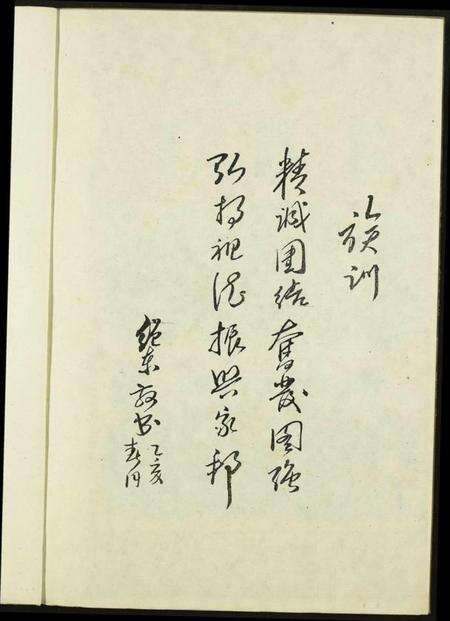 族训
精诚团结奋發图强
弘扬祖德振興家邦
继东敬书
乙亥
春月